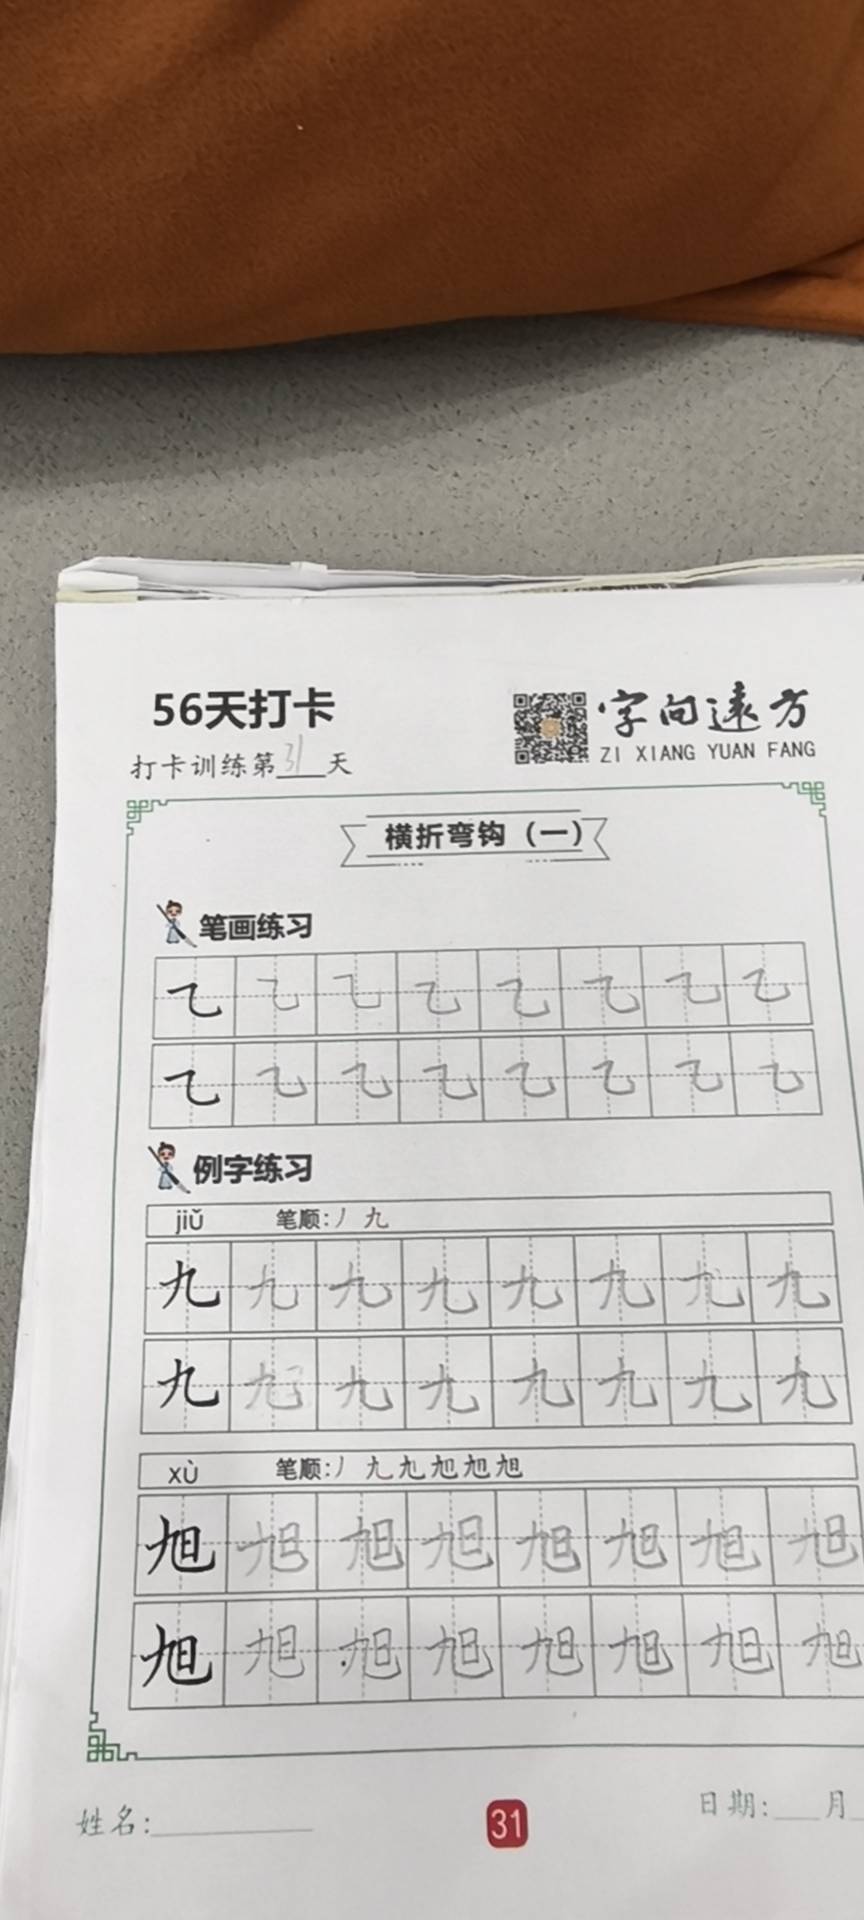 56天打卡
字向远方
ZI XIANG YUAN FANG
打卡训练第31天
横折弯钩（一）
笔画练习
乙 乙 乙 乙 乙 乙 乙 乙
乙 乙 乙 乙 乙 乙 乙 乙
例字练习
jiǔ 笔顺:丿 九
九 九 九 九 九 九 九 九
九 九 九 九 九 九 九 九
xù 笔顺:丿 九 九 旭 旭 旭
旭 旭 旭 旭 旭 旭 旭 旭
旭 旭 旭 旭 旭 旭 旭 旭
姓名:
31
日期: 月